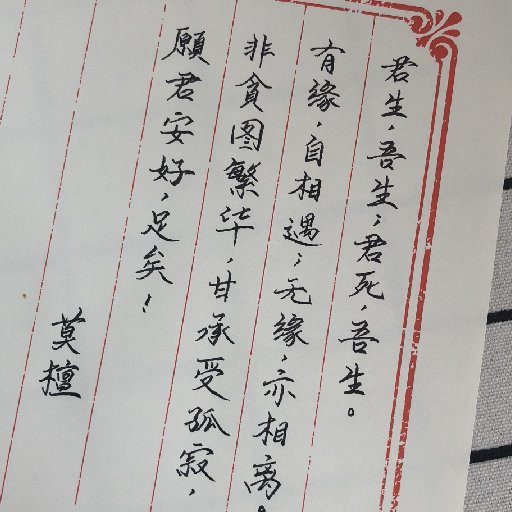 君生，吾生；君死，吾生。
有缘，自相遇；无缘，亦相离。
非贪图繁华，甘承受孤寂，
願君安好，足矣！
莫檀